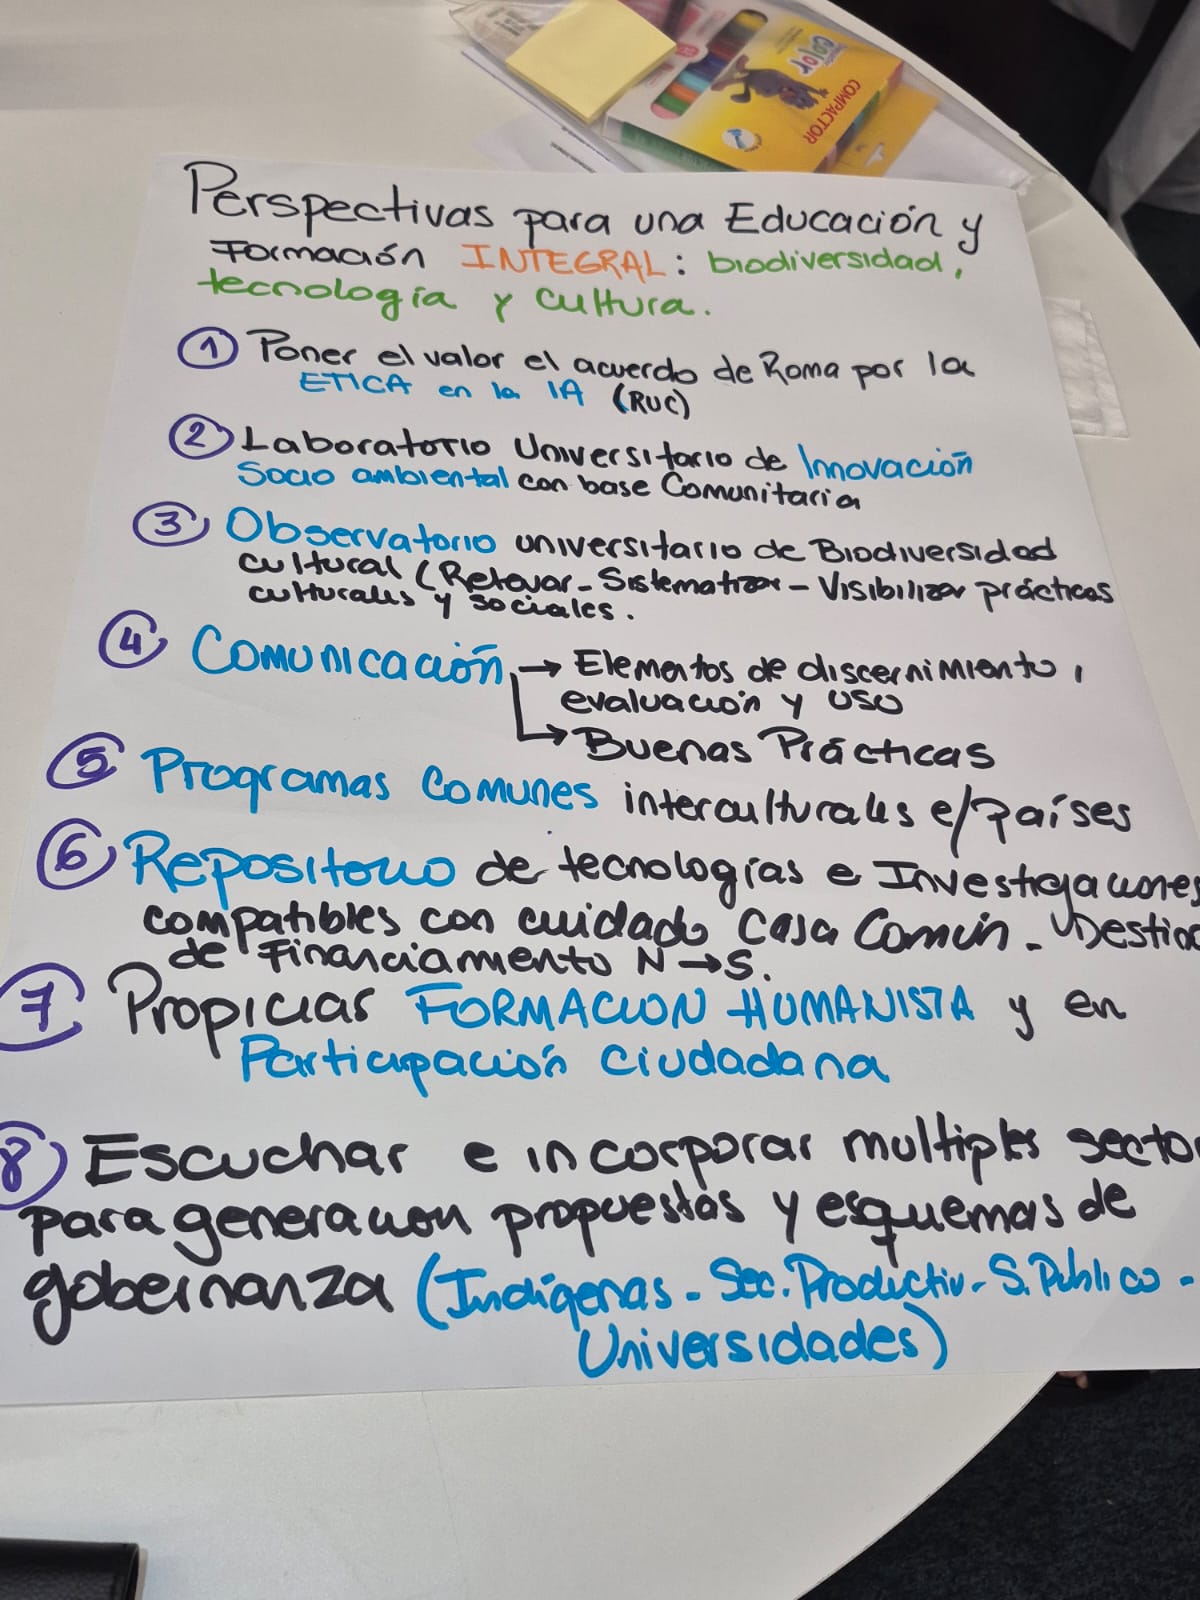 color
COMPACTOR
Perspectivas para una Educación y
Formación INTEGRAL: biodiversidad,
tecnología y cultura.
1 Poner el valor el acuerdo de Roma por la
ETICA en la IA (RUC)
2 Laboratorio Universitario de Innovación
Socio ambiental con base Comunitaria
3 Observatorio universitario de Biodiversidad
cultural (Relevar - Sistematizar - Visibilizar prácticas
culturales y sociales.
4 Comunicación → Elementos de discernimiento,
evaluación y uso
→ Buenas Prácticas
5 Programas Comunes interculturales e/países
6 Repositorio de tecnologías e Investigaciones
compatibles con cuidado Casa Común - Destino
de Financiamiento N → S.
7 Propiciar FORMACION HUMANISTA y en
Participación Ciudadana
8 Escuchar e incorporar multiples secto
para generacion propuestas y esquemas de
gobernanza (Indígenas - Sec. Productiv - S. Público -
Universidades)